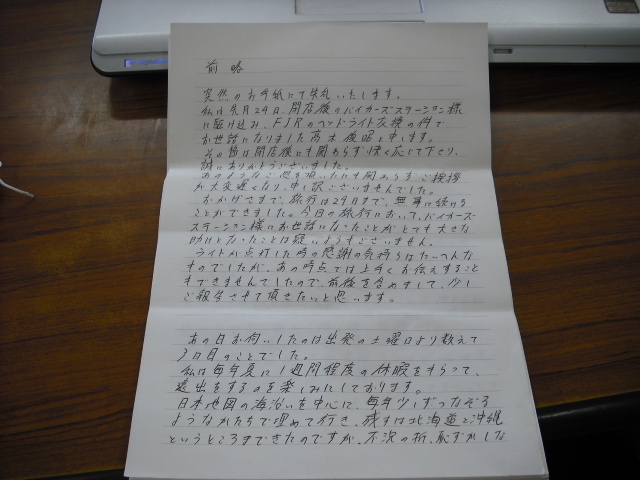 前略
突然のお手紙にて失礼いたします。
私は先月24日、閉店後のバイカーズステーション様
に駆け込み、FJRのヘッドライト交換の件で
お世話になりました高木 俊昭と申します。
その節は閉店後にも関わらず快く応じて下さり、
誠にありがとうございました。
あのようなご恩を頂いたにも関わらずご挨拶
が大変遅くなり、申し訳ございませんでした。
おかげさまで、旅行は29日まで、無事に続ける
ことができました。今回の旅行において、バイカーズ
ステーション様にお世話になったことがとても大きな
助けとなったことは疑いようもございません。
ライトが点灯した時の感謝の気持ちはたいへんな
ものでしたが、あの時点では上手くお伝えすること
もできませんでしたので、前後を含めまして、少し
ご報告させて頂きたいと思います。
あの日お伺いしたのは出発の土曜日より数えて
3日目のことでした。
私は毎年夏に1週間程度の休暇をもらって、
遠出をするのを楽しみにしております。
日本地図の海沿いを中心に、毎年少しずつなぞる
ようなかたちで埋めて行き、残すは北海道と沖縄
というところまできたのですが、不況の折、恥ずかしな